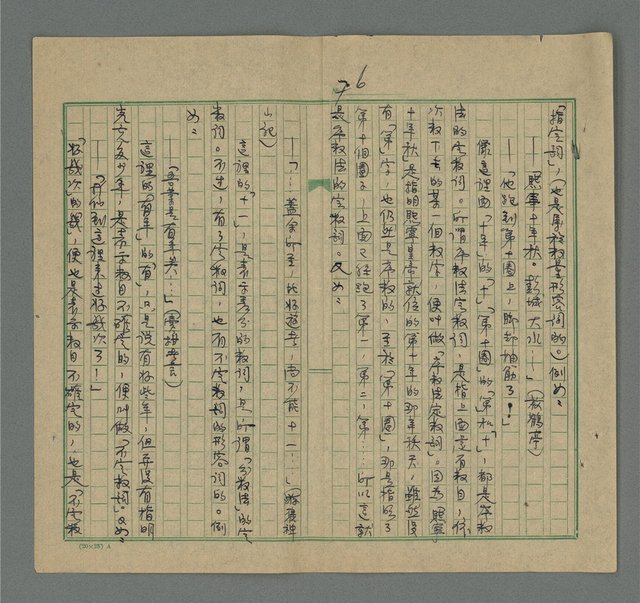 76
「指定詞」，(也是屬於數量形容詞的。)例如：
「熙寧十年秋。彭城大水——」(放鶴亭)
——「他跑到第十圈上，腳却抽筋了。」
像這裡面「十年」的「十」，「第十圈」的「第和十」，都是序數
法的定數詞。所謂序數法定數詞，是指上面定有數目，依
次數下去的某一個數字，便叫做「序數法定數詞」。因為熙寧
十年秋」是指明熙寧皇帝就位的第十年的那年秋天，雖然沒
有「第」字，也仍然是序數的，至於「第十圈」，那是指跑了
第十個圈子——上面已經跑了第一，第二，第…所以這就
是序數法的定數詞。又如：
「…蓋余所至，比好遊者，尚不能十一…」(遊褒禪
山記)
這裡的「十一」，是表示表分的數詞，是所謂「分數法」的定
數詞。不過，有了定數詞，也有不定數詞的形容詞的。例
如：
——「吾釁是有年矣…」(賣柑者言)
這裡的「有年」的「有」，只是說有好些年，但并沒有指明
究竟多少年，是表示數目不確定的，便叫做「不定數詞。又如：
——「我他到這裡來過好幾次了！」
「好幾次」的「幾」，便也是表示數目不確定的，也是「不定數
(20×25) A